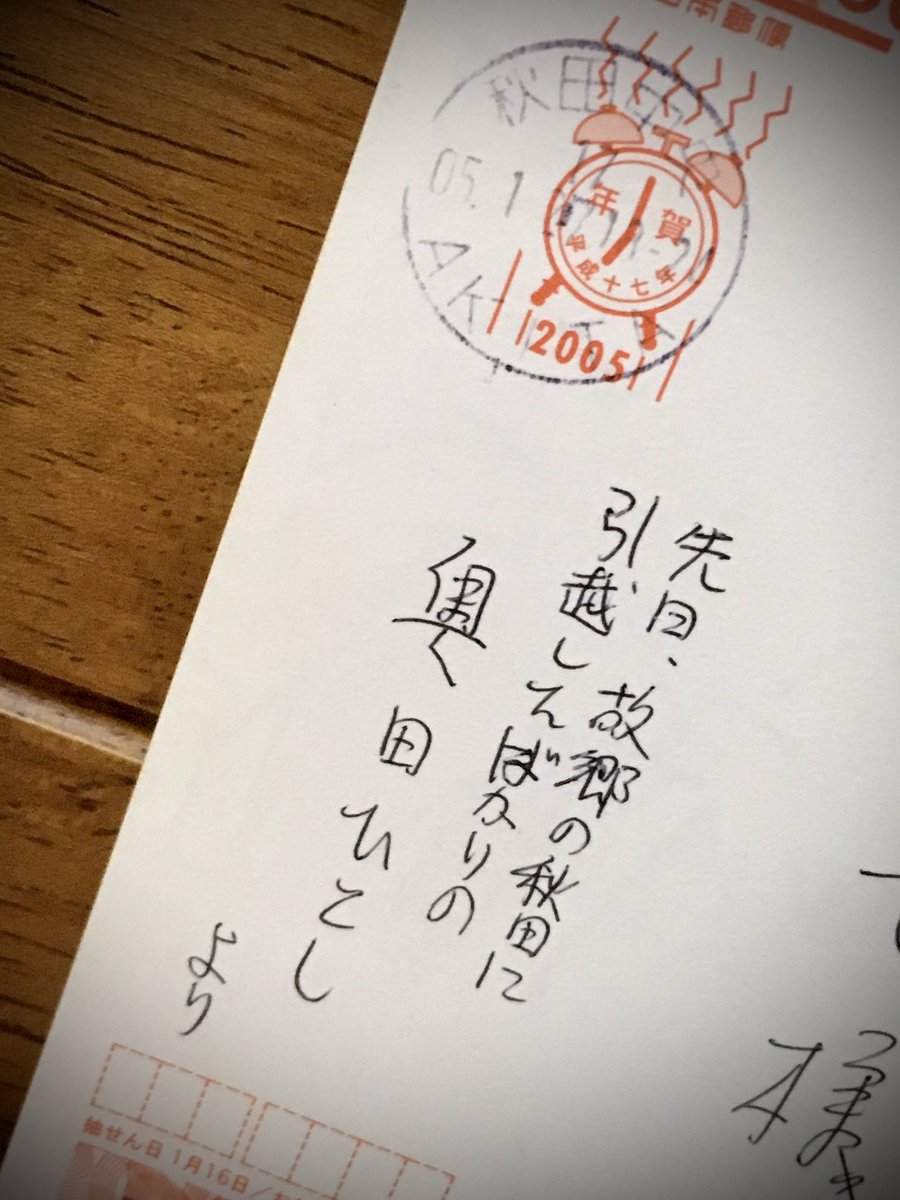 日本郵便
秋田中央
05.1
AKITA
年賀
平成十七年
2005
先日、故郷の秋田に
引越してばかりの
奥田ひこし
より
様
抽せん日 1月16日／お